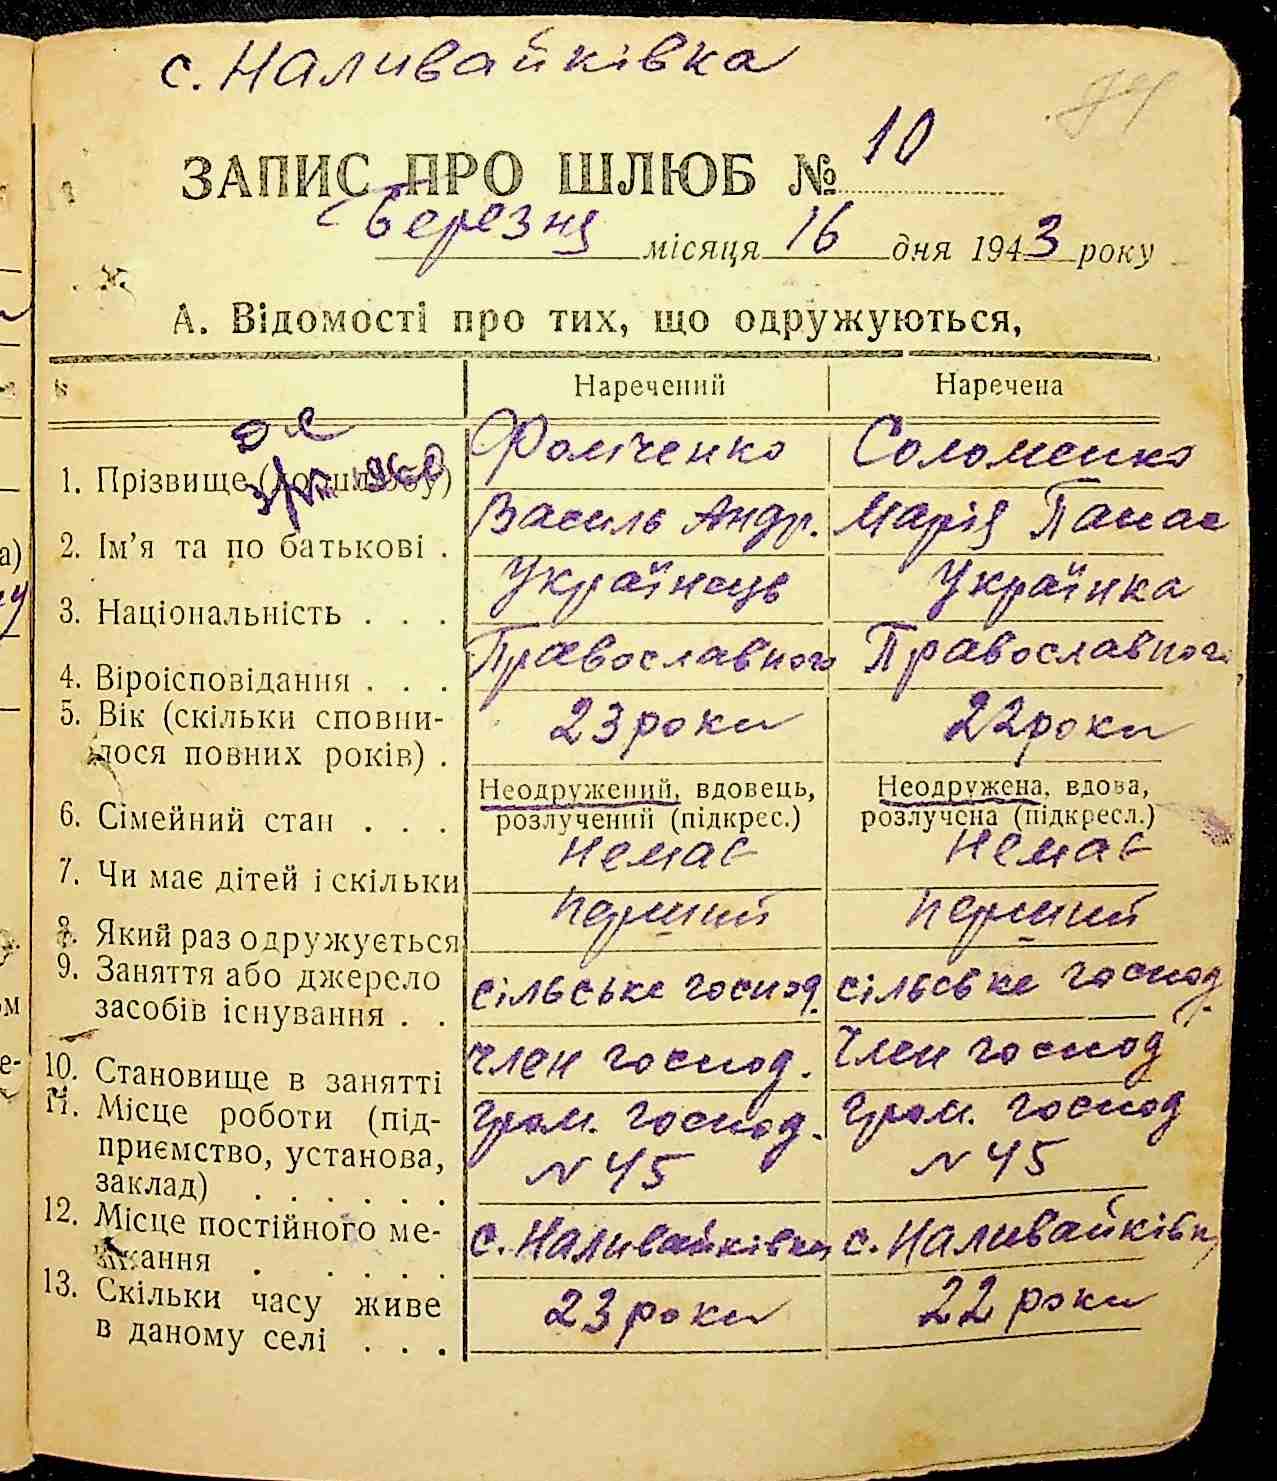 с. Наливайківка
ЗАПИС ПРО ШЛЮБ № 10
Березня місяця 16 дня 1943 року
А. Відомості про тих, що одружуються,
Наречений Наречена
1. Прізвище (до шлюбу) Фоліченко Соломенко
2. Ім'я та по батькові . Василь Андр. Марія Панас
3. Національність . . . Українець Українка
4. Віроісповідання . . . Православного Православного
5. Вік (скільки сповни-
лося повних років) . 23 роки 22 роки
6. Сімейний стан . . . Неодружений, вдовець, Неодружена, вдова,
розлучений (підкрес.) розлучена (підкресл.)
7. Чи має дітей і скільки немає немає
8. Який раз одружується перший перший
9. Заняття або джерело
засобів існування . . сільське господ. сільське господ.
10. Становище в занятті член господ. член господ
11. Місце роботи (під- Гром. господ. Гром. господ
приємство, установа, N 45 N 45
заклад) . . . . . .
12. Місце постійного ме- с. Наливайківка с. Наливайківка
шкання . . . . .
13. Скільки часу живе 23 роки 22 роки
в даному селі . . .